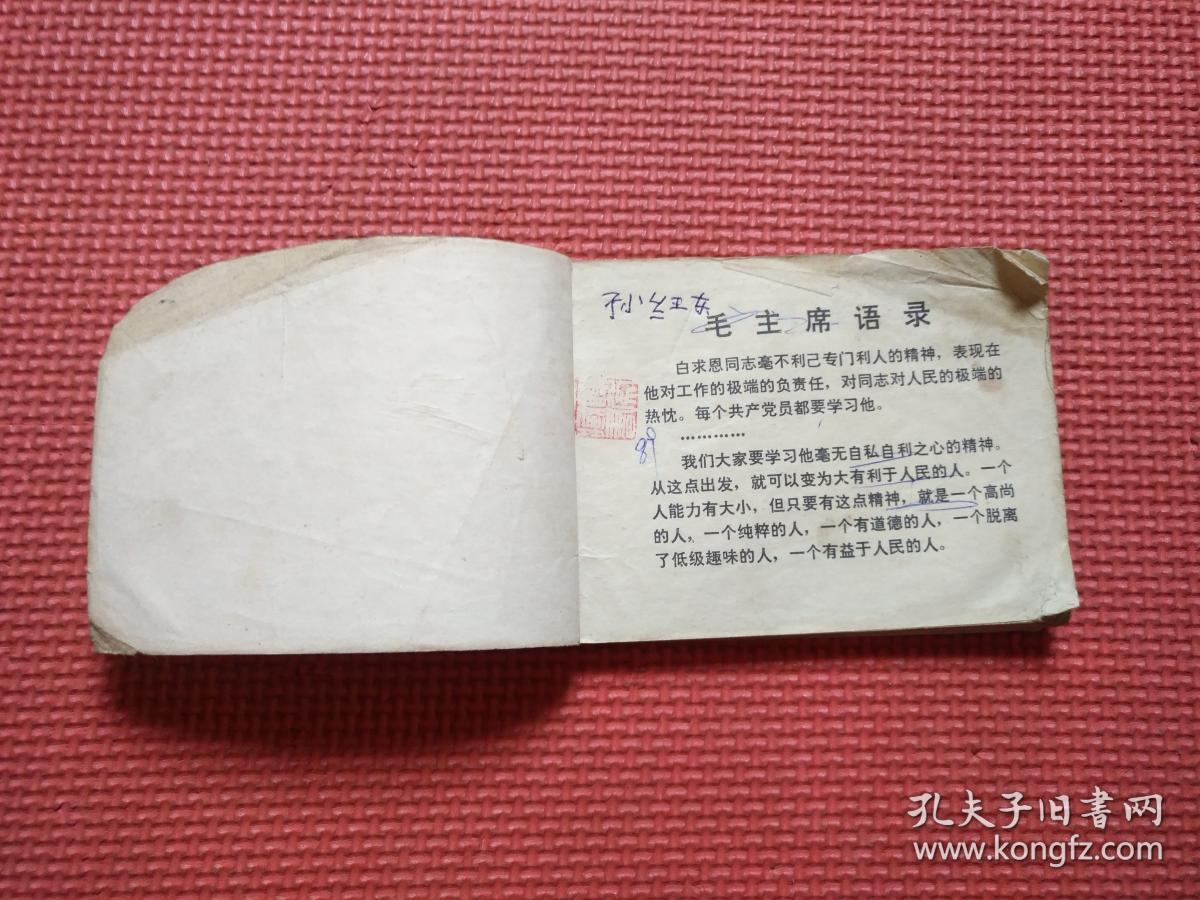 毛主席语录
白求恩同志毫不利己专门利人的精神，表现在
他对工作的极端的负责任，对同志对人民的极端的
热忱。每个共产党员都要学习他。
…………
89
我们大家要学习他毫无自私自利之心的精神。
从这点出发，就可以变为大有利于人民的人。一个
人能力有大小，但只要有这点精神，就是一个高尚
的人，一个纯粹的人，一个有道德的人，一个脱离
了低级趣味的人，一个有益于人民的人。
孔夫子旧书网
www.kongfz.com